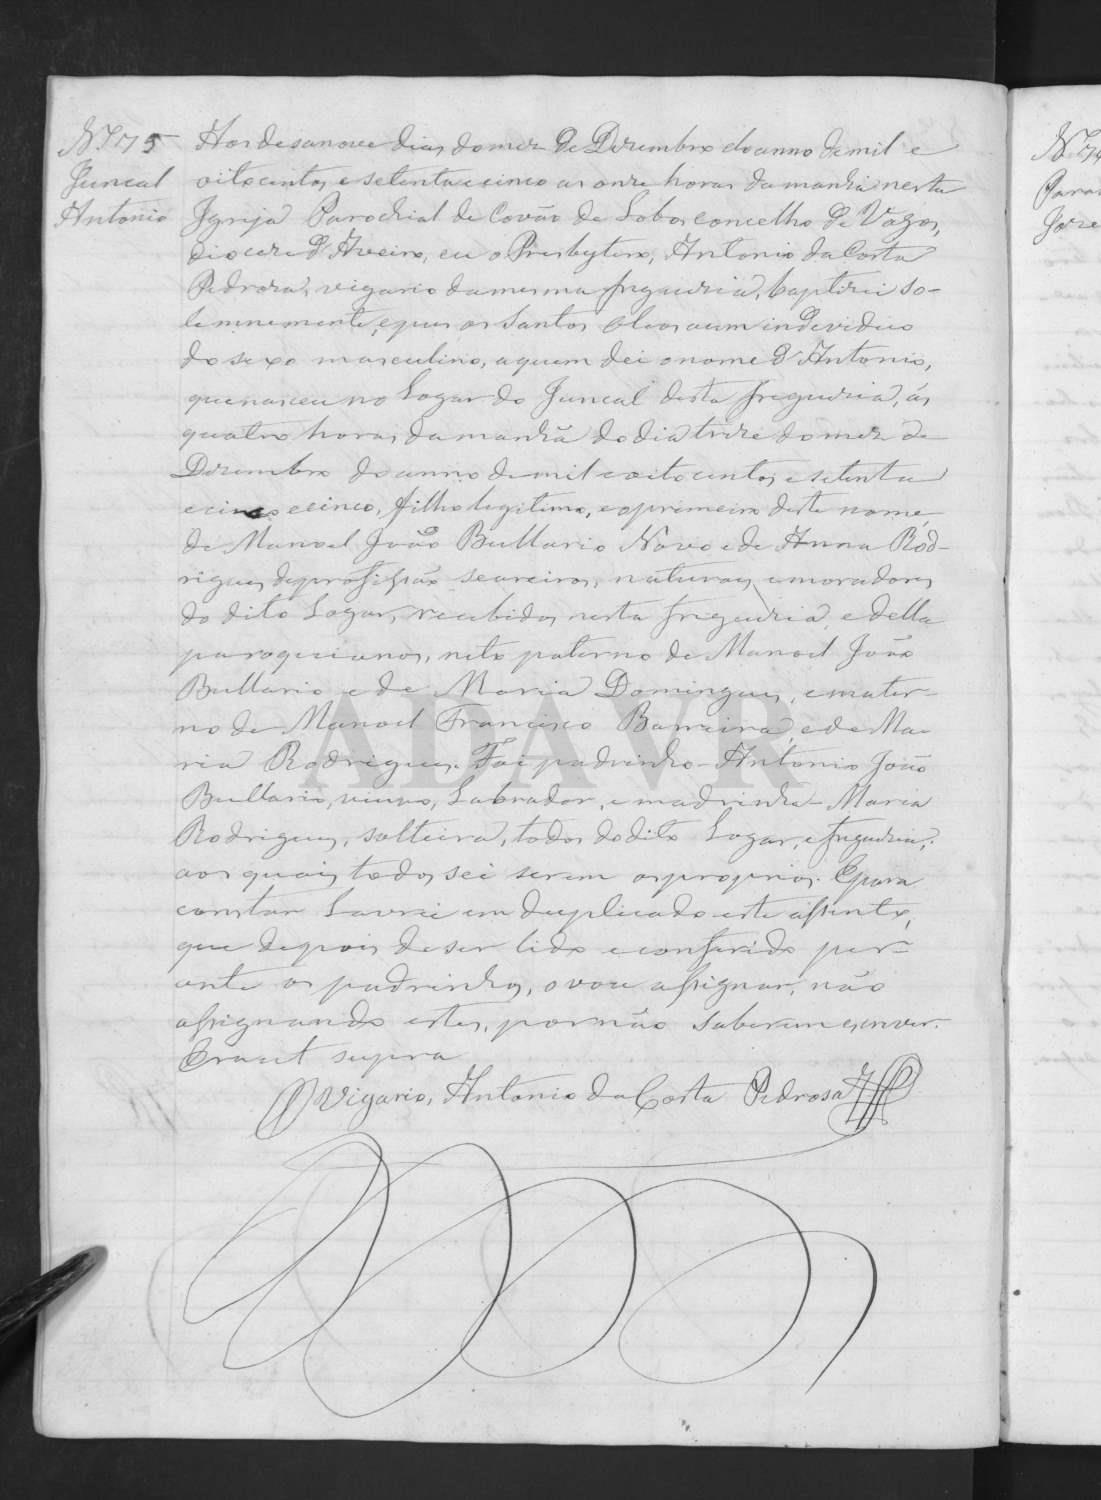 Nº 75
Juncal
Antonio
Aos desanove dias do mez de Dezembro do anno de mil e
oitocentos e setenta e cinco as onze horas da manhã nesta
Igreja Parochial de Covão de Lobos concelho de Vagos,
Diocese d'Aveiro, eu o Presbytero, Antonio da Costa
Pedrosa, vigario da mesma freguezia, baptizei so-
lemnemente, e puz os Santos Oleos a um individuo
do sexo masculino, a quem dei o nome d'Antonio,
que nasceu no Logar do Juncal desta freguezia, ás
quatro horas da manhã do dia treze do mez de
Dezembro do anno de mil e oitocentos e setenta
e cinco e cinco, filho legitimo, e o primeiro deste nome,
de Manoel João Bullario Novo e de Anna Rod-
rigues, de profissão seareiros, naturaes e moradores
do dito Logar, recebidos nesta freguezia, e della
paroquianos, neto paterno de Manoel João
Bullario e de Maria Domingues, e mater-
no de Manoel Francisco Barreira, e de Ma-
ria Rodrigues. Foi padrinho Antonio João
Bullario, viuvo, Labrador, e madrinha Maria
Rodrigues, solteira, todos do dito Logar, e freguezia,
aos quais todos sei serem os proprios. E para
constar Lavrei em duplicado este assento,
que depois de ser lido e conferido per-
ante os padrinhos, o vou assignar, não
assignando estes, por não saberem escrever.
Era ut supra
O Vigario, Antonio da Costa Pedrosa
ADAVR